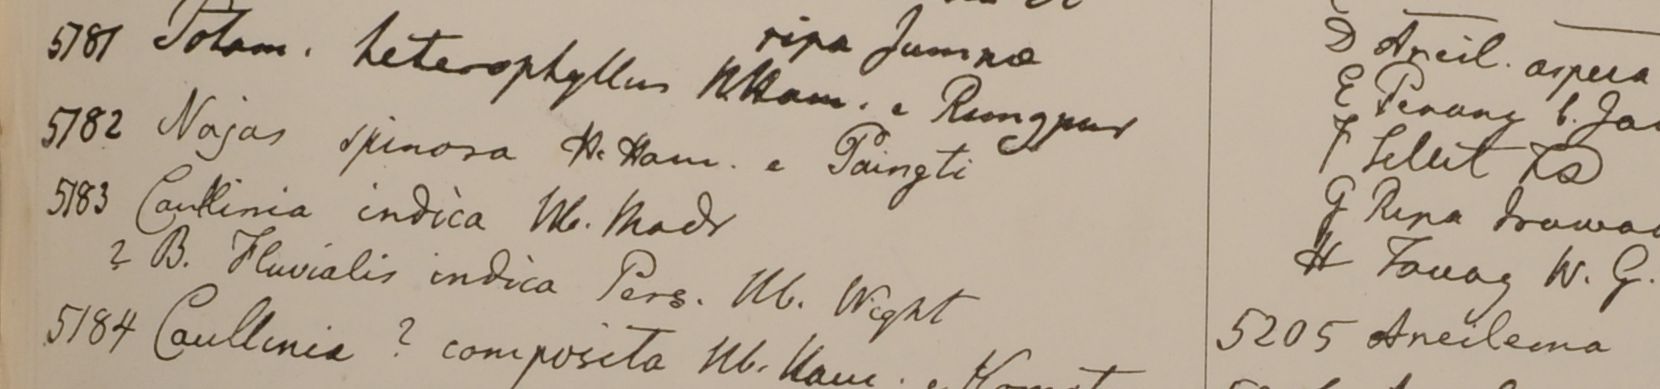 ripa Jumnæ
5181 Potam. heterophyllus H. Ham. e Rungpur
5182 Najas spinosa H. Ham. e Paingti
5183 Caulinia indica Hb. Madr
? B. Fluvialis indica Pers. Hb. Wight
5184 Caullinia ? composita Hb. Ham. e
D Aneil. aspera
E Penang
F
G Ripa
H Tavoy W. G.
5205 Aneilema